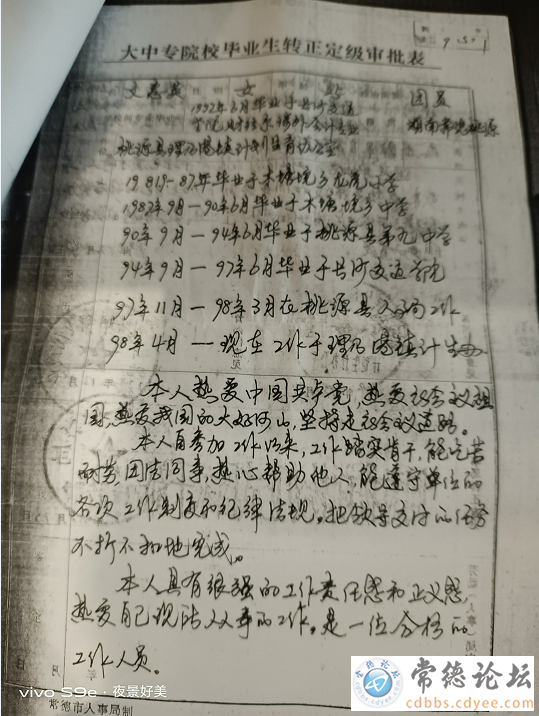 大中专院校毕业生转正定级审批表
女
团员
1997年6月毕业于长沙交通
学院财经系涉外会计专业
湖南常德桃源
桃源县理公港镇计划生育办公室
1981.9-87年毕业于木塘垸乡龙虎小学
1987年9月-90年6月毕业于木塘垸乡中学
90年9月-94年6月毕业于桃源县第九中学
94年9月-97年6月毕业于长沙交通学院
97年11月-98年3月在桃源县人事局工作
98年4月-现在工作于理公港镇计生办
本人热爱中国共产党,热爱社会主义祖
国,热爱我国的大好河山,坚持走社会主义道路。
本人自参加工作以来,工作踏实肯干,能吃苦
耐劳,团结同事,热心帮助他人,能遵守单位的
各项工作制度和纪律法规。把领导交付的任务
不折不扣地完成。
本人具有很强的工作责任感和正义感
热爱自己现所从事的工作。是一位合格的
工作人员。
常德市人事局制
vivo S9e · 夜景好美
常德论坛
cdbbs.cdyee.com